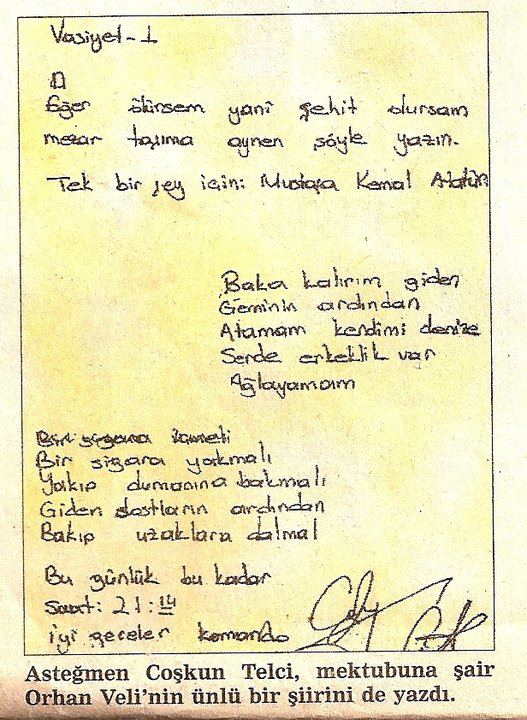 Vasiyet - 1
Eğer ölürsem yani şehit olursam
mezar taşıma aynen şöyle yazın.
Tek bir şey için: Mustafa Kemal Atatür
Baka kalırım giden
Geminin ardından
Atamam kendimi denize
Serde erkeklik var
Ağlayamam
Bir sigara
Bir sigara yakmalı
Yakıp dumanına bakmalı
Giden dostların ardından
Bakıp uzaklara dalmal
Bu günlük bu kadar
Saat: 21:14
iyi geceler komando
Asteğmen Coşkun Telci, mektubuna şair
Orhan Veli'nin ünlü bir şiirini de yazdı.